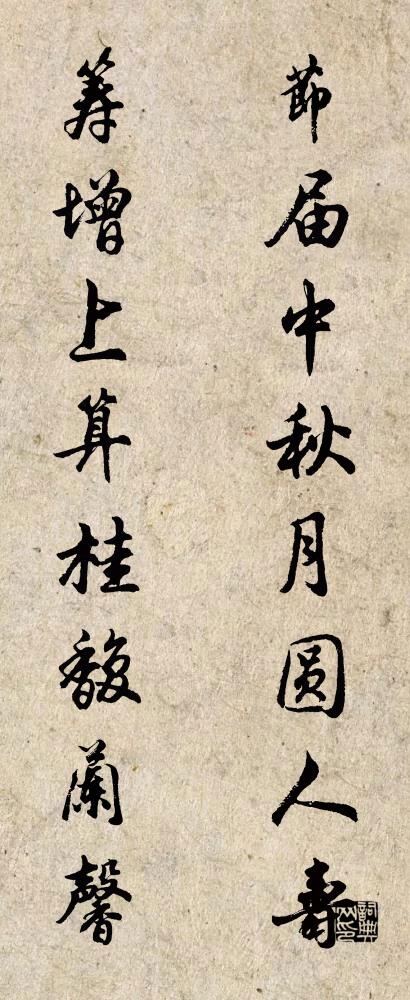 節届中秋月圓人壽
籌增上算桂馥蘭馨